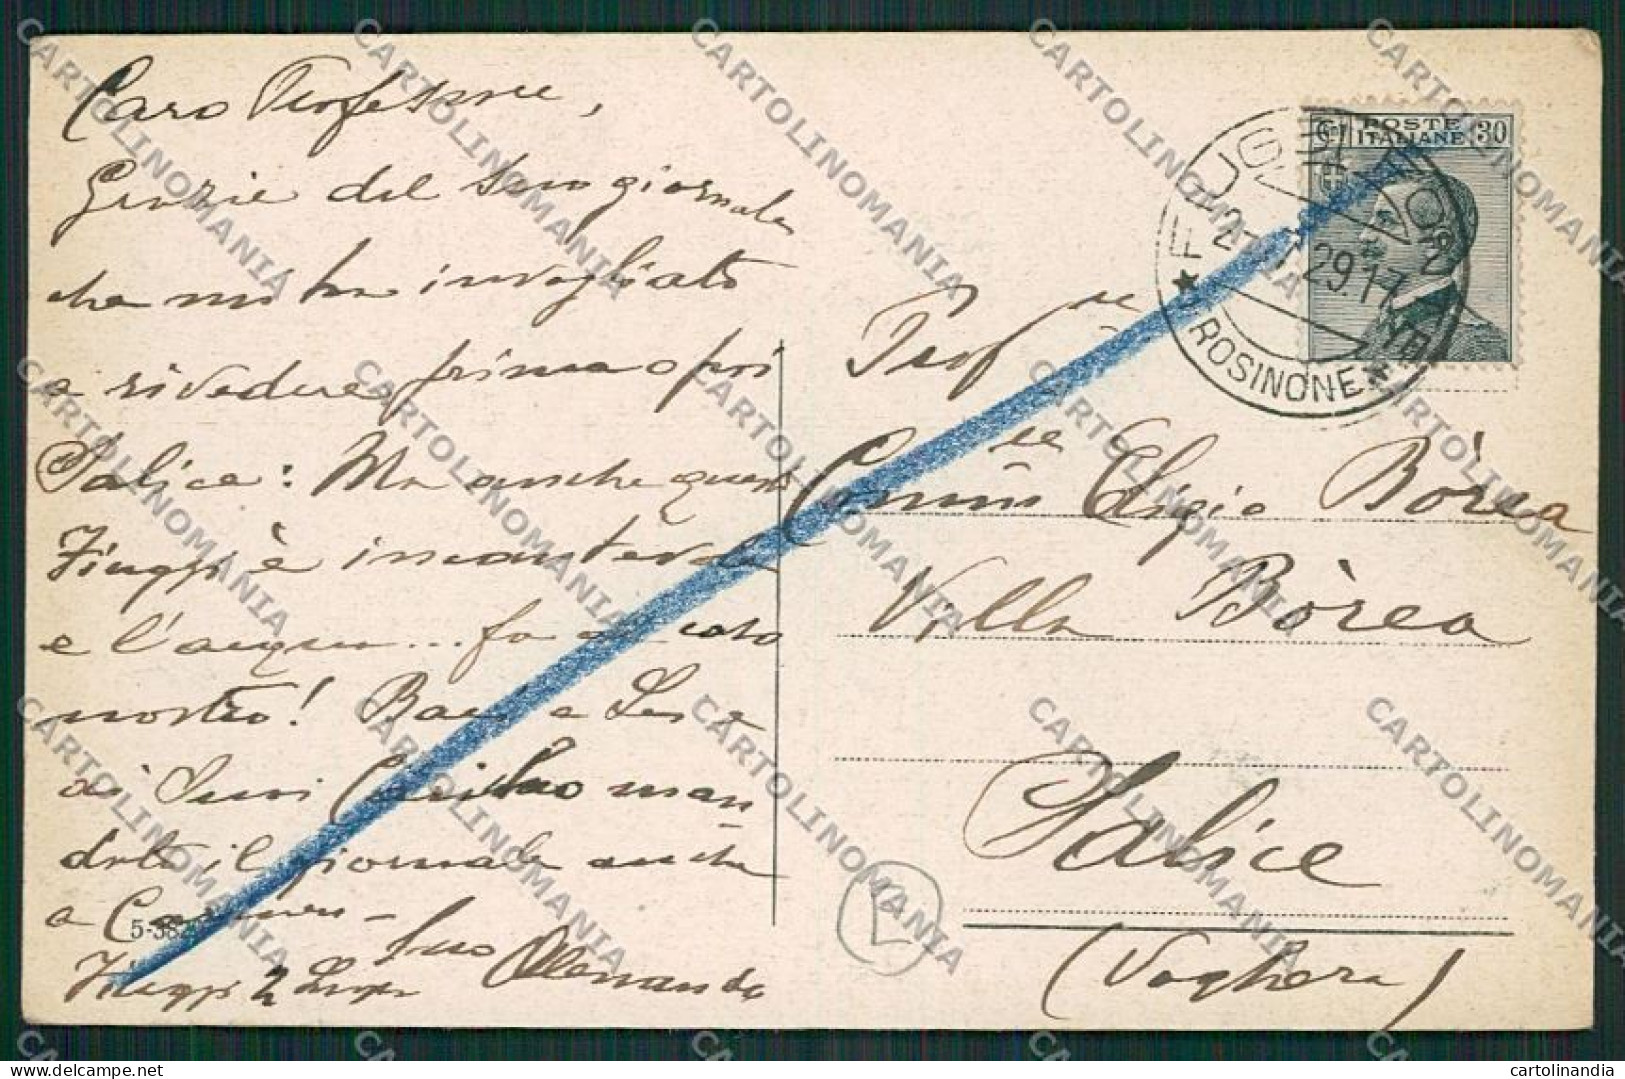 Caro Professore,
Grazie del suo giornale
che mi ha invogliato
a rivedere prima o poi
Salice: Ma anche questa
Fiuggi è incantevole
e l'acqua... fa al caso
nostro! Baci a Lei e
ai Suoi
mandate il giornale anche
a
Fiuggi 2 Suo
5-382
POSTE
ITALIANE
30
FIUGGI
29.17
FROSINONE
Prof.re
Comm.re Eligio Bòrea
Villa Bòrea
Salice
(Voghera)
L
CARTOLINOMANIA
cartolinandia